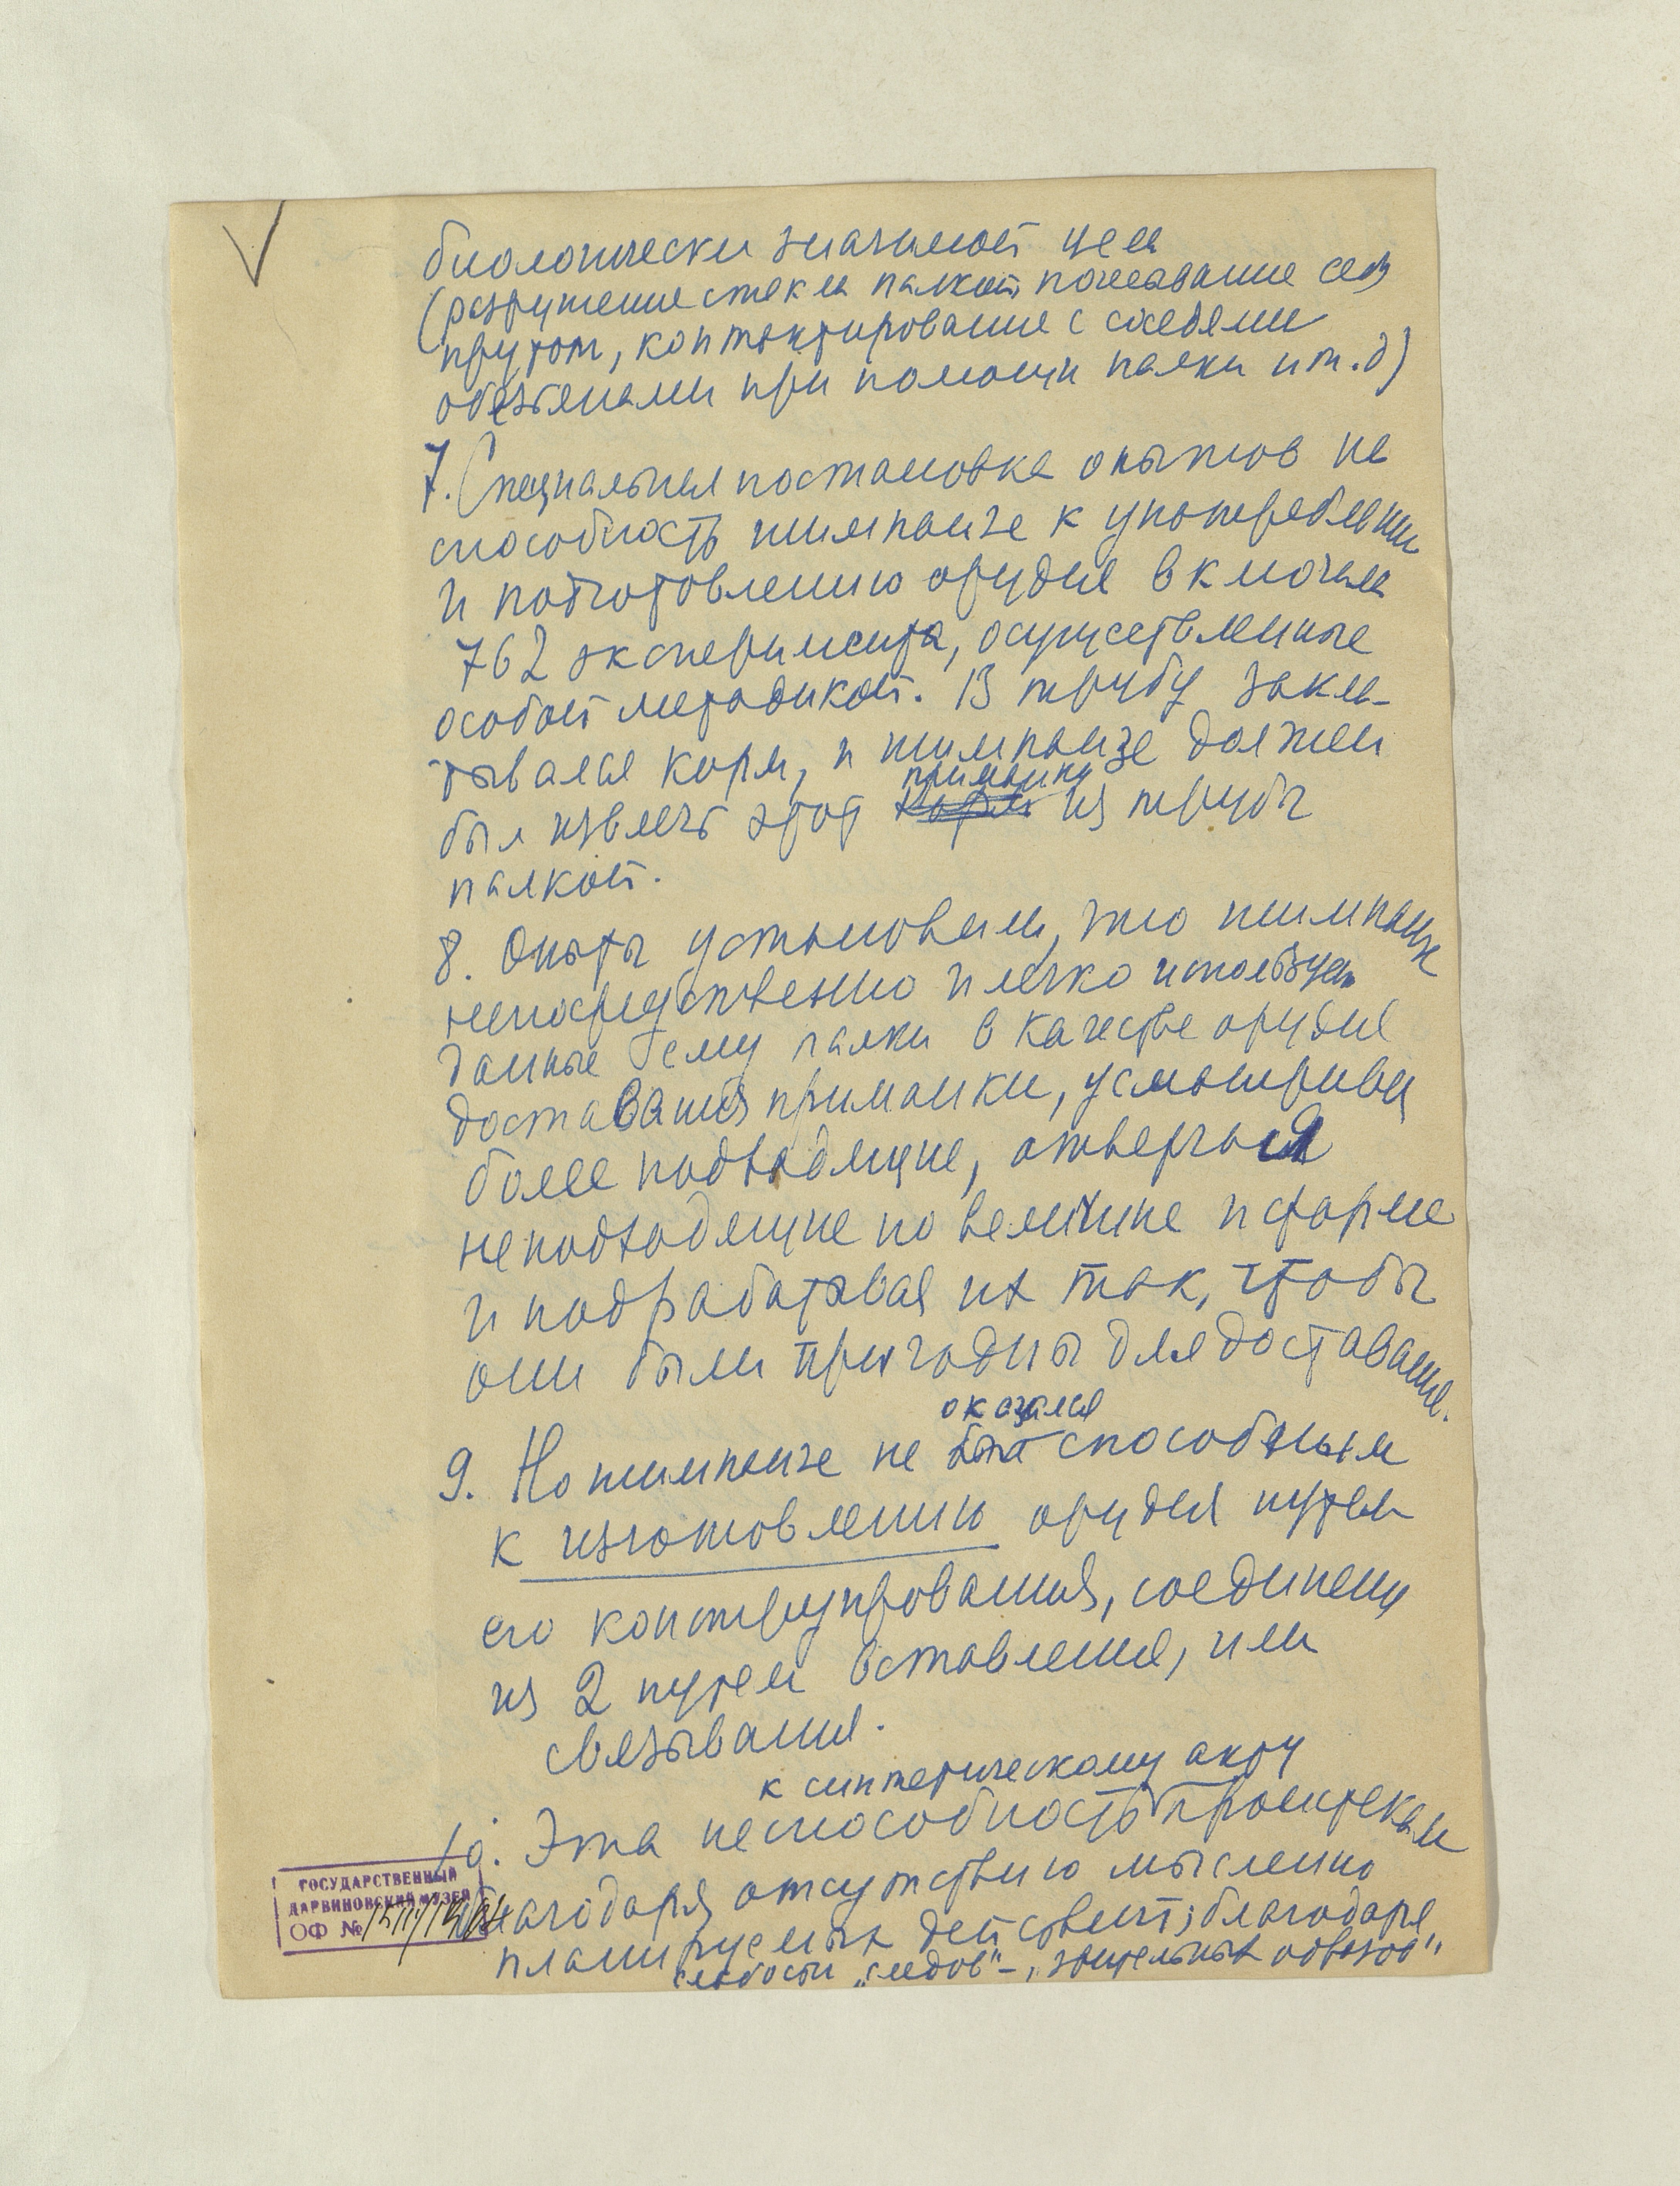 биологически значимой цели
(разрушение стекла палкой, почесывание себя
прутом, контактирование с соседями
обезьянами при помощи палки и т.д)
7. Специальная постановка опытов на
способность шимпанзе к употреблению
и подготовлению орудия включала
762 эксперимента, осуществленные
особой методикой. В трубу закла-
дывался корм, и шимпанзе должен
был извлечь этот приманку из трубы
палкой.
8. Опыты установили, что шимпанзе
непосредственно и легко использует
данные ему палки в качестве орудия
доставания приманки, усматривая
более подходящие, отвергая
неподходящие по величине и форме
и подрабатывая их так, чтобы
они были пригодны для доставания.
9. Но шимпанзе не оказался способным
к изготовлению орудия путем
его конструирования, соединения
из 2 путем вставления, или
связывания.
10. Эта неспособность к синтетическому акту проистекает
благодаря отсутствию мысленно
планируемых действий; благодаря
слабости „следов" – „зрительных образов"
ГОСУДАРСТВЕННЫЙ
ДАРВИНОВСКИЙ МУЗЕЙ
ОФ №